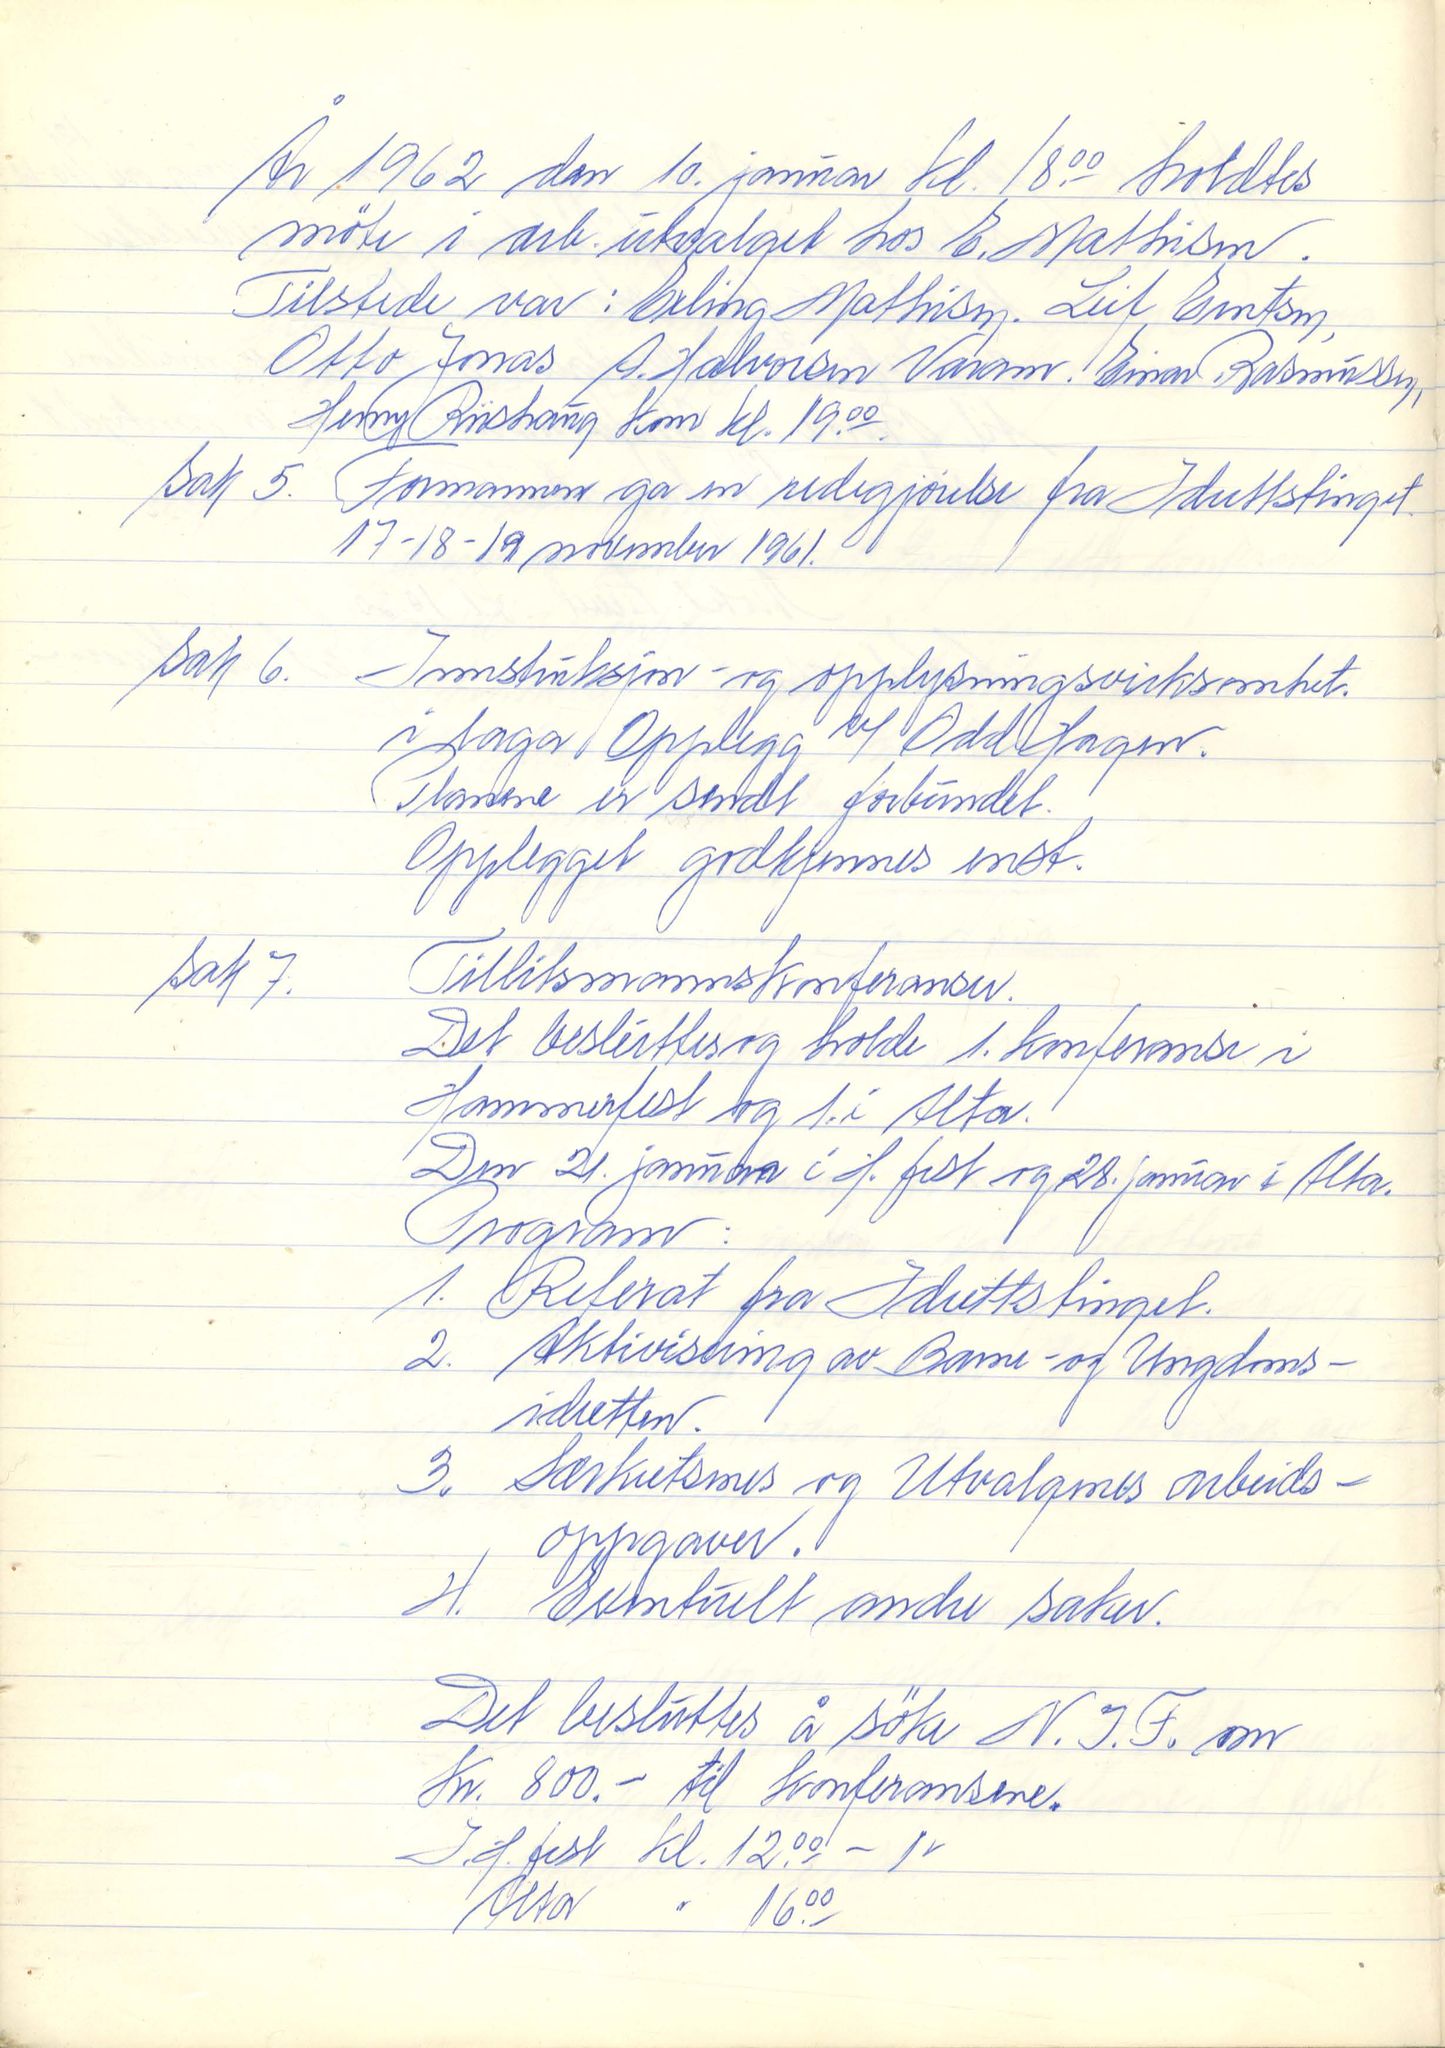 År 1962 den 10. januar kl. 18.00 holdtes
möte i arb. utvalget hos E. Mathisen.
Tilstede var: Erling Mathisen. Leif Erntsen,
Otto Jonas A. Halvorsen Varam. Einar Rasmussen,
Henry Riishaug kom kl. 19.00.
Sak 5. Formannen ga en redegjörelse fra Idrettstinget
17-18-19 november 1961.
Sak 6. Innstruksjon- og opplysningsvirksomhet.
i Opplegg v/ Odd Hagen.
Planene er sendt forbundet.
Opplegget godkjennes enst.
Sak 7. Tillitsmannskonferanser.
Det besluttes og holde 1. konferanse i
Hammerfest og 1. i Alta.
Den 21. januar i H. fest og 28. januar i Alta.
Program:
1. Referat fra Idrettstinget.
2. Aktivisering av Barne- og Ungdoms-
idretten.
3. Særkretsenes og Utvalgenes arbeids-
oppgaver.
4. Eventuelt andre saker.
Det besluttes å söke N.I.F. om
Kr. 800.- til konferansene.
I H. fest kl. 12.00 -
Alta " 16.00